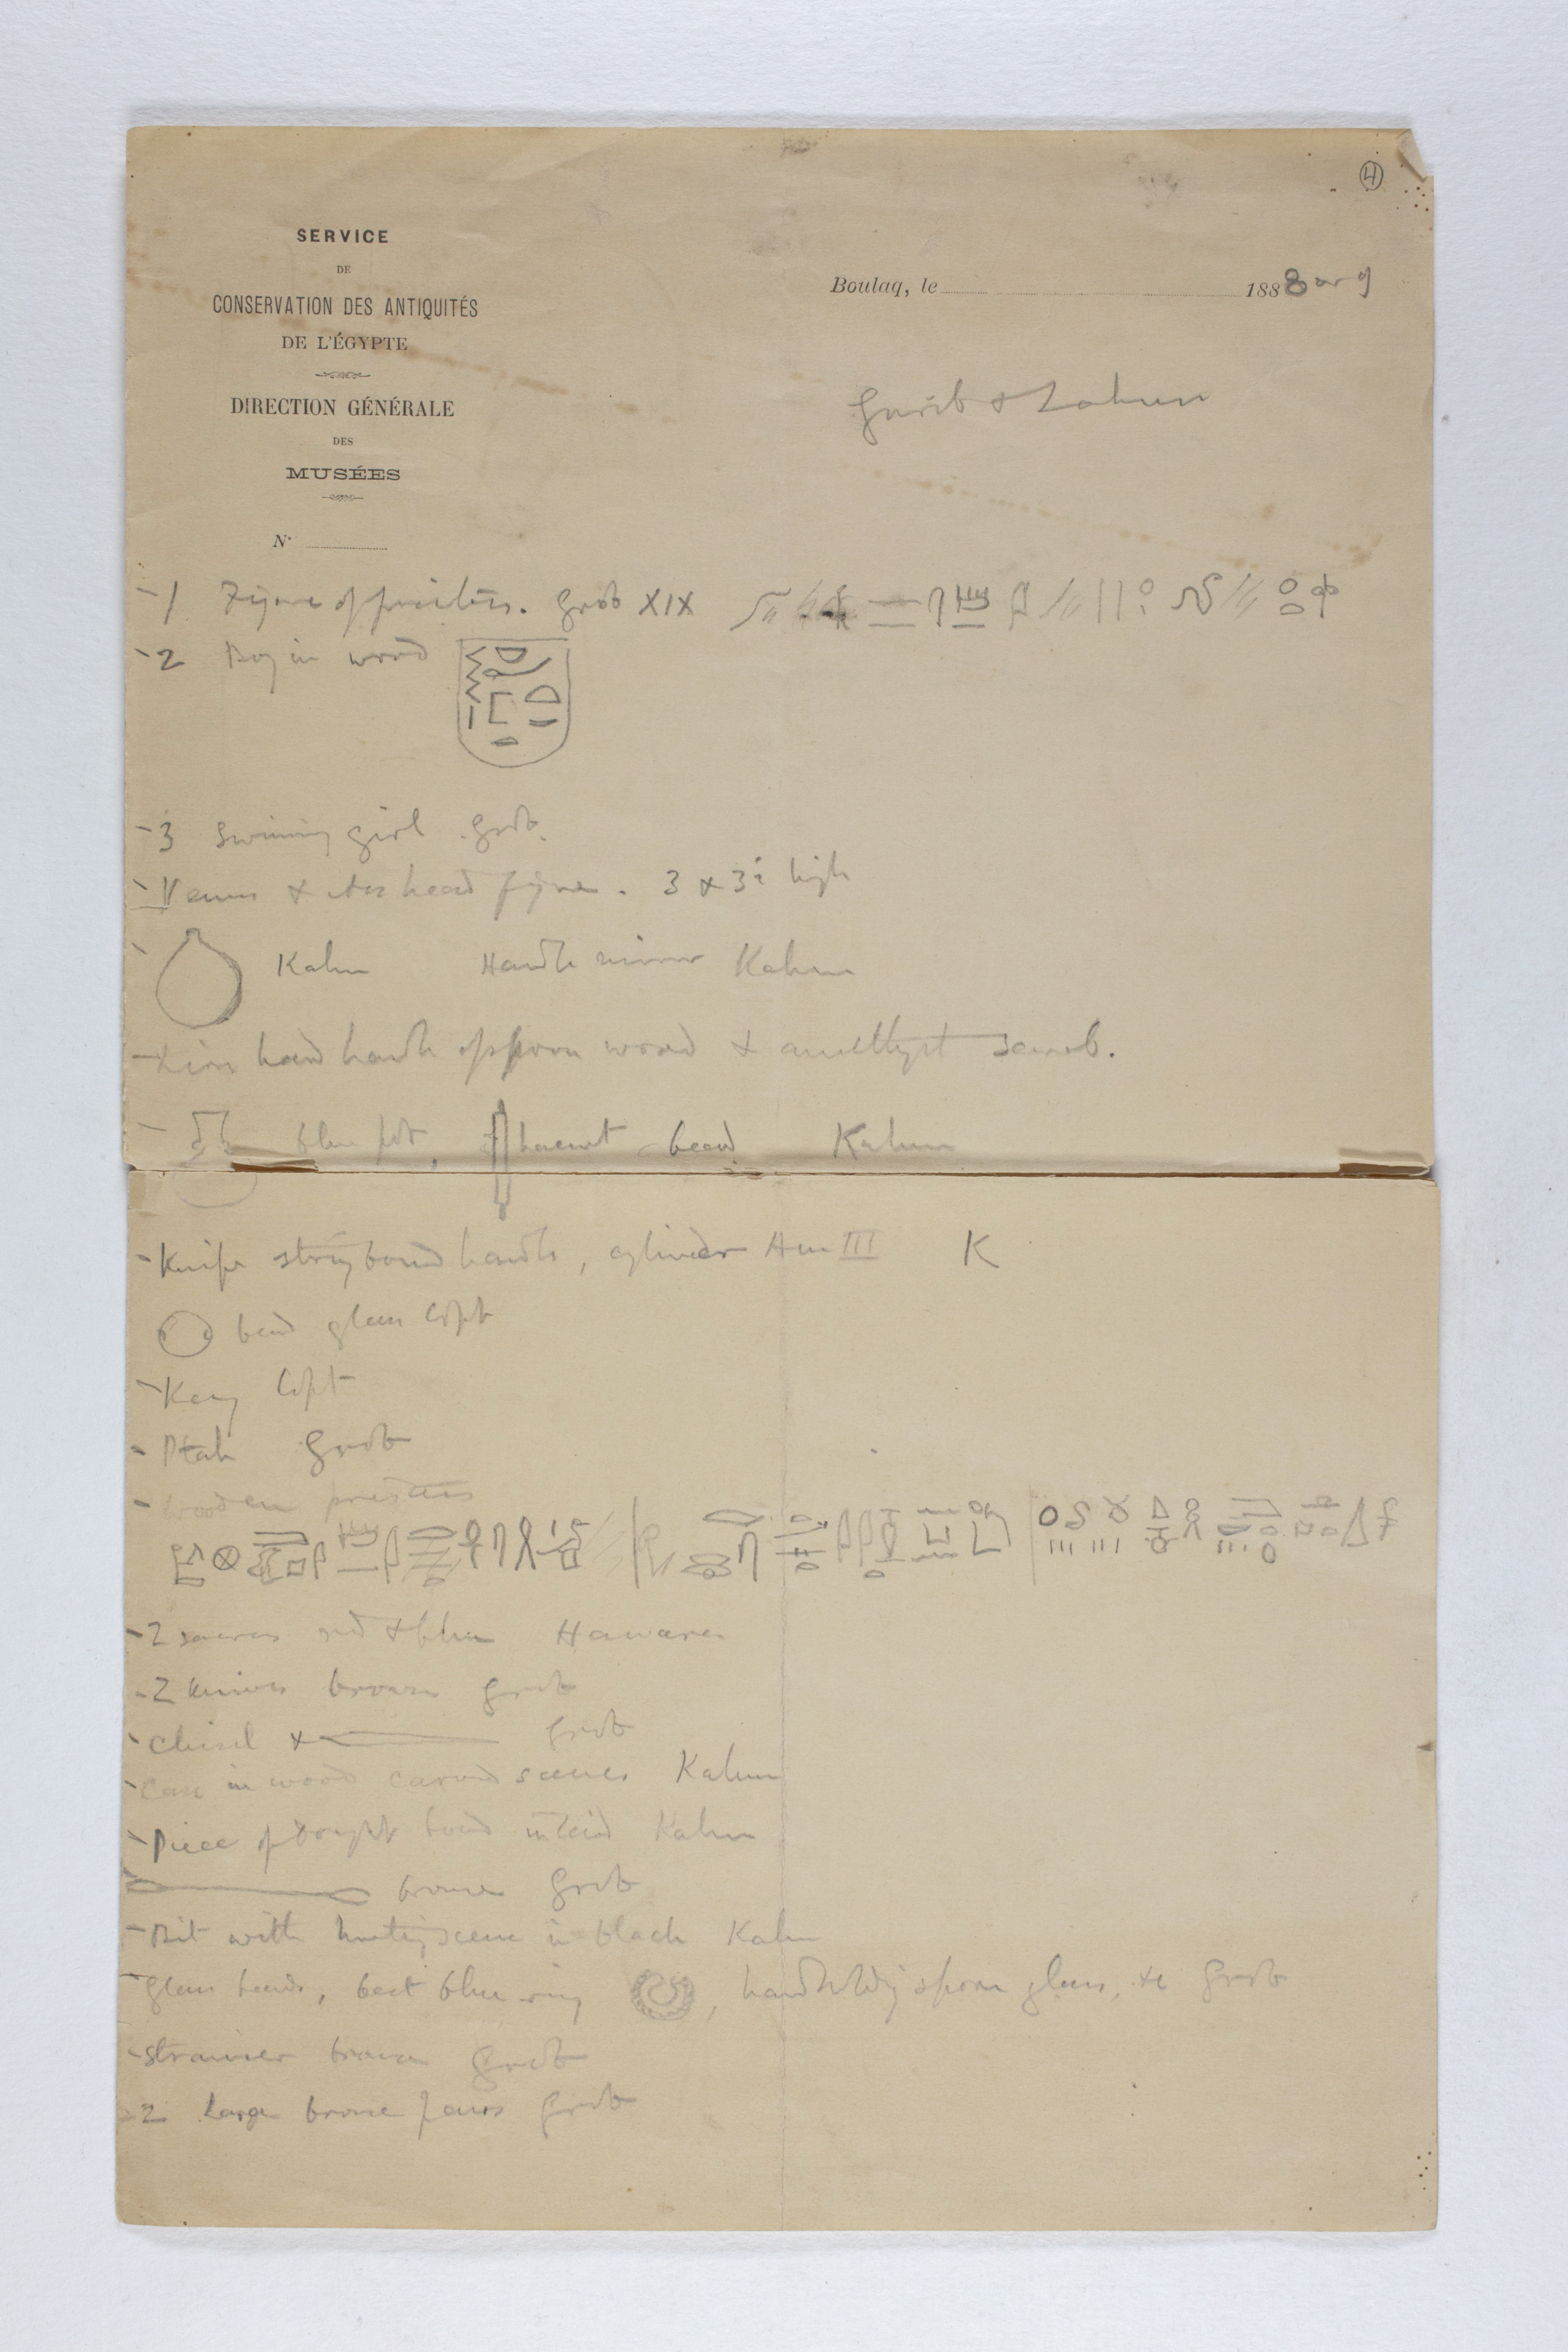 ④
SERVICE
DE
CONSERVATION DES ANTIQUITÉS
DE L'ÉGYPTE
DIRECTION GÉNÉRALE
DES
MUSÉES
N°
Boulaq, le 1888 or 9
Gurob & Lahun
-1 Figure of priestess. Grob XIX
-2 Boy in wood
-3 Swimming girl Grob.
- Venus & head figure. 3 & 3½ high
- Kahun Handle mirror Kahun
- Lion hand handle of spoon wood & amethyst scarab.
- blue pot, bead Kahun
- Knife string bound handle, cylinder Am III K
bead glass Copt
- Key Copt
- Ptah Grob
- Wooden priestess
- 2 saucers red & blue Hawara
- 2 knives bronze Grob
- Chisel & Grob
- Case in wood carved scenes Kahun
- Piece of inlaid Kahun
bronze Grob
- Bit with hunting scene in black Kahun
- Glass beads, best blue ring, hand holding spoon glass, &c Grob
- Strainer bronze Grob
- 2 Large bronze pans Grob